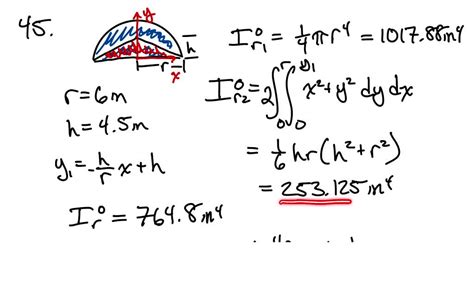 45.
y
h
r
x
r = 6m
h = 4.5m
y₁ = -h/r x + h
I_r^o = 764.8m⁴
I_r1^o = 1/4 πr⁴ = 1017.88m⁴
I_r2^o = 2∫₀^r ∫₀^y₁ x² + y² dy dx
= 1/6 hr(h² + r²)
= 253.125m⁴